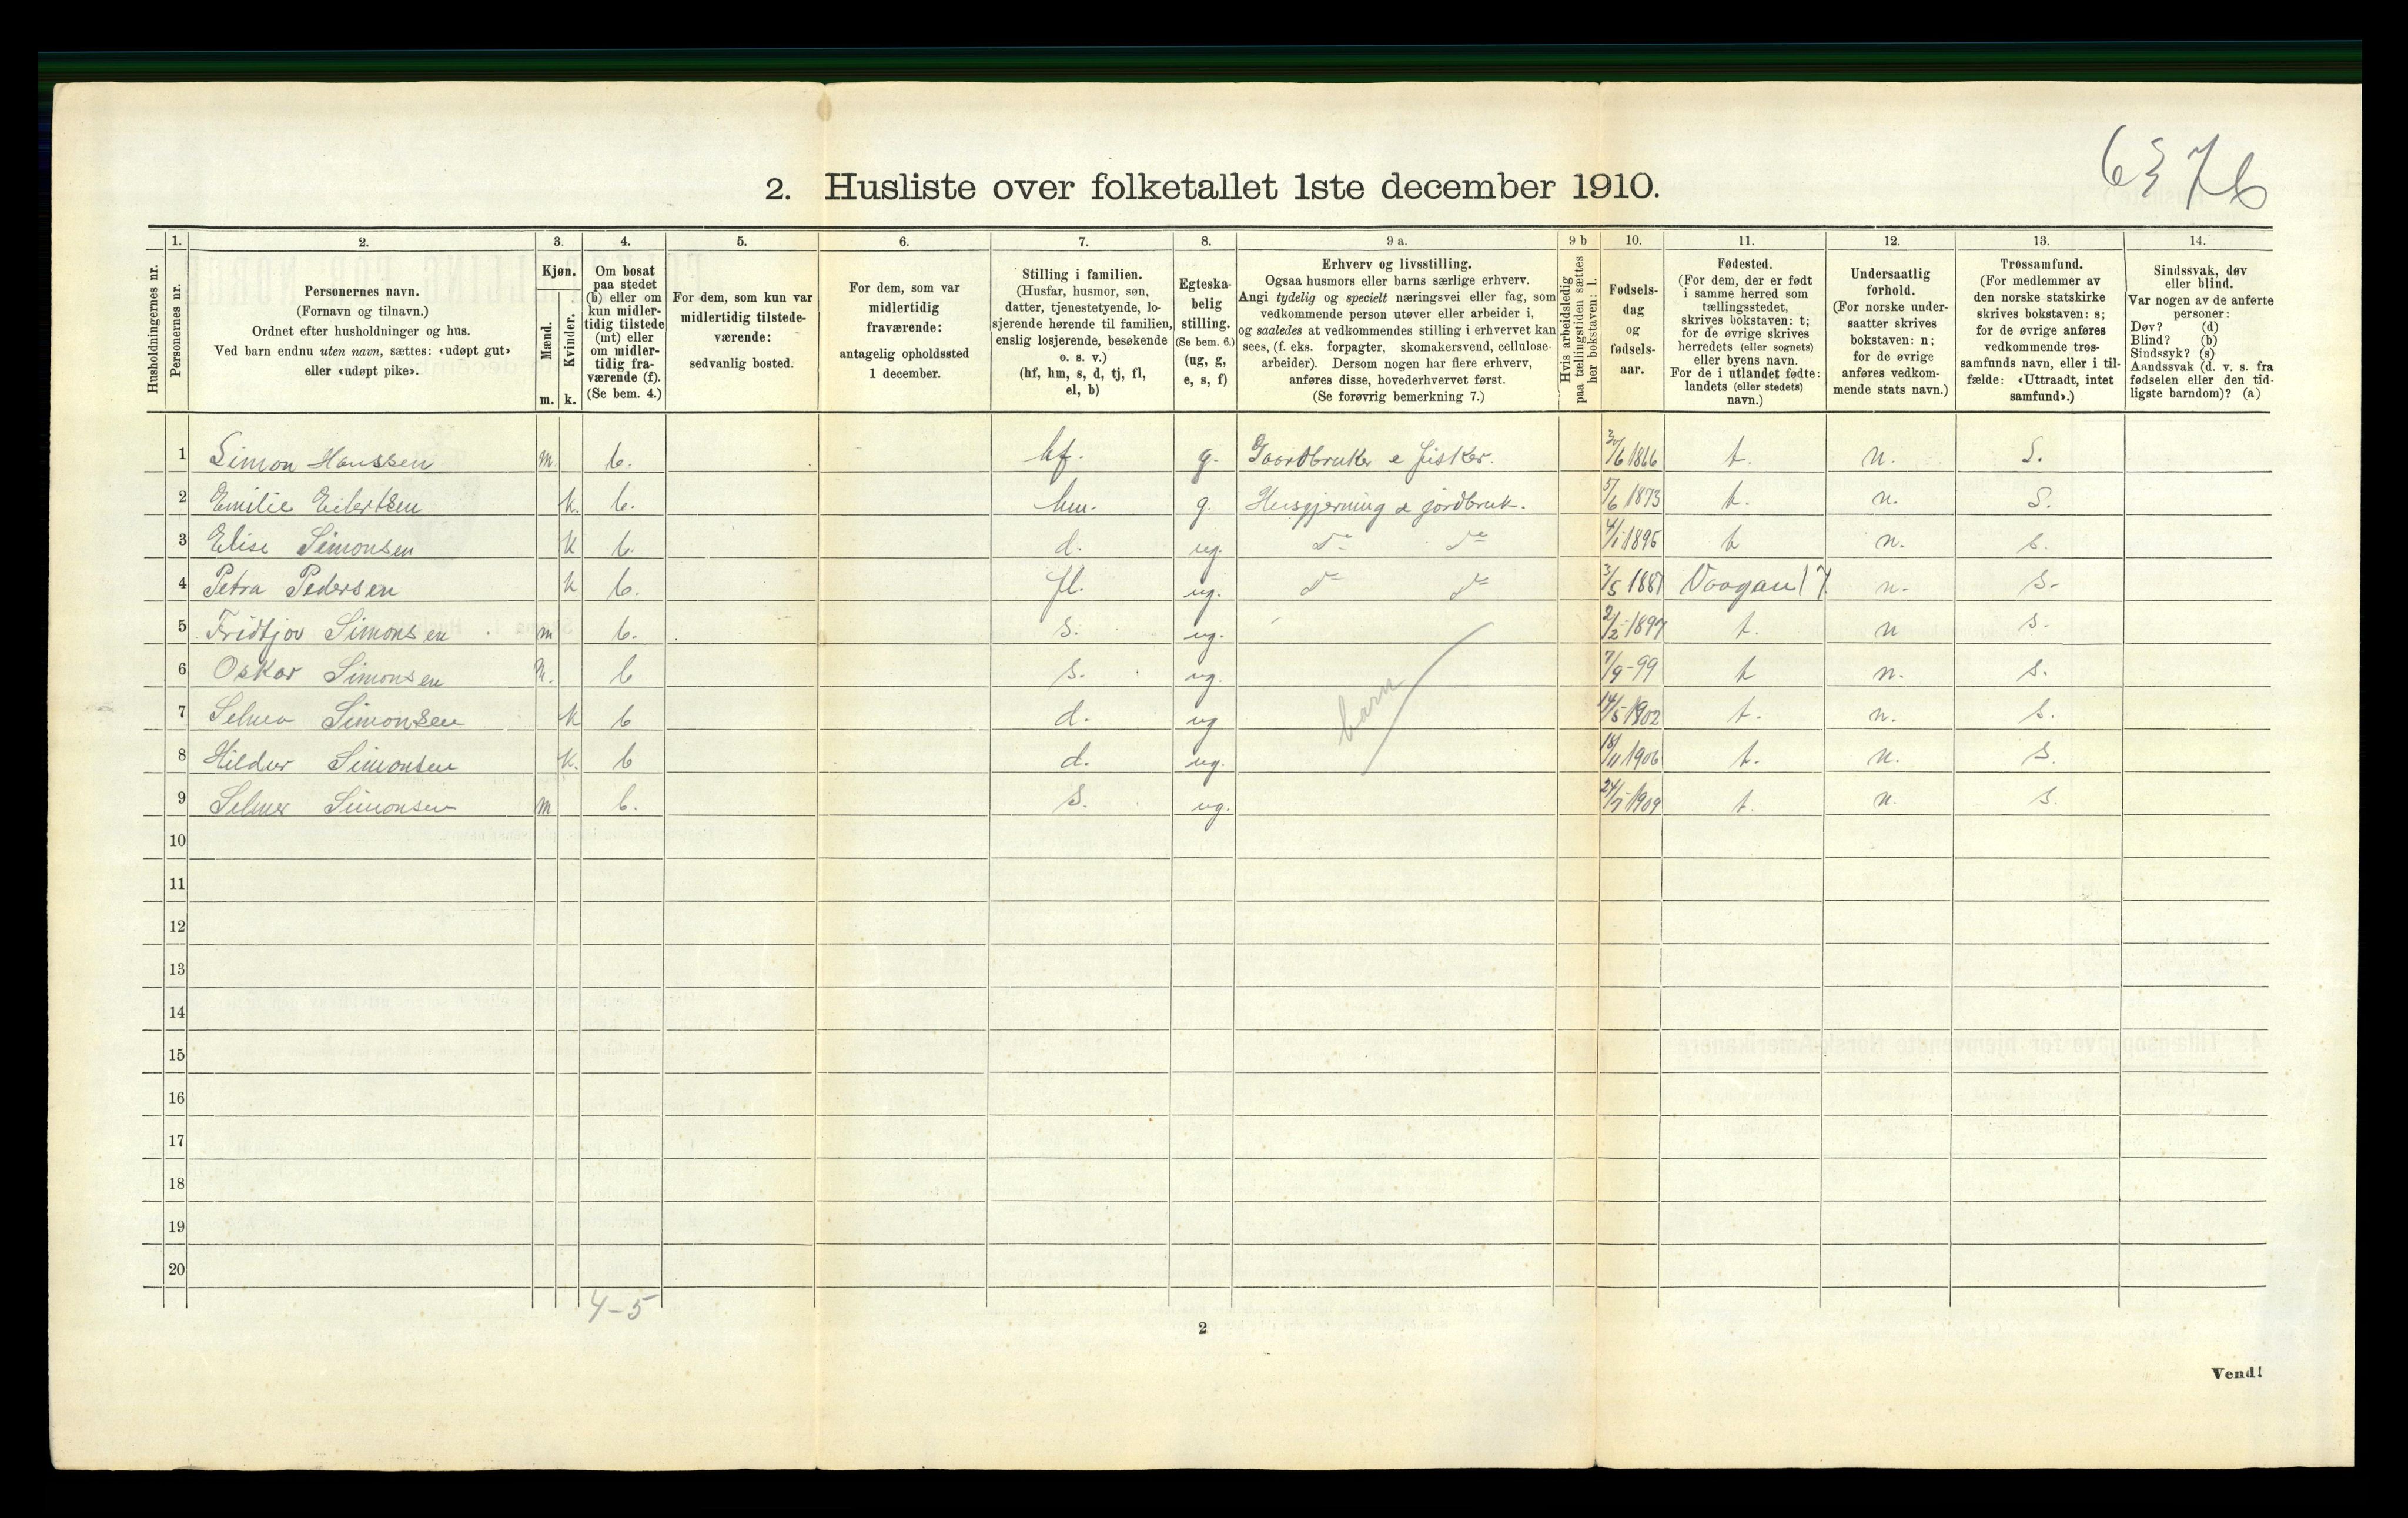 6376
2. Husliste over folketallet 1ste december 1910.
Husholdningernes nr.
1. Personernes nr.
2. Personernes navn.
(Fornavn og tilnavn.)
Ordnet efter husholdninger og hus.
Ved barn endnu uten navn, sættes: «udøpt gut»
eller «udøpt pike».
3. Kjøn.
Mænd. Kvinder.
m. k.
4. Om bosat
paa stedet
(b) eller om
kun midler-
tidig tilstede
(mt) eller
om midler-
tidig fra-
værende (f).
(Se bem. 4.)
5. For dem, som kun var
midlertidig tilstede-
værende:
sedvanlig bosted.
6. For dem, som var
midlertidig
fraværende:
antagelig opholdssted
1 december.
7. Stilling i familien.
(Husfar, husmor, søn,
datter, tjenestetyende, lo-
sjerende hørende til familien,
enslig losjerende, besøkende
o. s. v.)
(hf, hm, s, d, tj, fl,
el, b)
8. Egteska-
belig
stilling.
(Se bem. 6.)
(ug, g,
e, s, f)
9 a. Erhverv og livsstilling.
Ogsaa husmors eller barns særlige erhverv.
Angi tydelig og specielt næringsvei eller fag, som
vedkommende person utøver eller arbeider i,
og saaledes at vedkommendes stilling i erhvervet kan
sees, (f. eks. forpagter, skomakersvend, cellulose-
arbeider). Dersom nogen har flere erhverv,
anføres disse, hovederhvervet først.
(Se forøvrig bemerkning 7.)
9 b Hvis arbeidsledig
paa tællingstiden sættes
her bokstaven: l.
10. Fødsels-
dag
og
fødsels-
aar.
11. Fødested.
(For dem, der er født
i samme herred som
tællingsstedet,
skrives bokstaven: t;
for de øvrige skrives
herredets (eller sognets)
eller byens navn.
For de i utlandet fødte:
landets (eller stedets)
navn.)
12. Undersaatlig
forhold.
(For norske under-
saatter skrives
bokstaven: n;
for de øvrige
anføres vedkom-
mende stats navn.)
13. Trossamfund.
(For medlemmer av
den norske statskirke
skrives bokstaven: s;
for de øvrige anføres
vedkommende tros-
samfunds navn, eller i til-
fælde: «Uttraadt, intet
samfund».)
14. Sindssvak, døv
eller blind.
Var nogen av de anførte
personer:
Døv? (d)
Blind? (b)
Sindssyk? (s)
Aandssvak (d. v. s. fra
fødselen eller den tid-
ligste barndom)? (a)
1 Simon Hanssen m b. hf. g. Gaardbruker & fisker. 6 1866 t. n. S.
2 Emilie Eilertsen k. b. hm. g. Husgjerning & jordbruk. 5/6 1873 t. n. S.
3 Elise Simonsen k b. d. ug. do do 4/1 1895 t n. s.
4 Petra Pedersen k b. fl. ug. do do 3/5 1887 Vaagan 17 n. s.
5 Fridtjov Simonsen m b. s. ug. 2/2 1897 t. n s.
6 Oskar Simonsen m. b s. ug. 7/9-99 t n. s.
7 Selma Simonsen k b d. ug 14/5 1902 t. n. s.
8 Hildur Simonsen k. b d. ug. 18/11 1906 t. n. s.
9 Selmer Simonsen m b. s. ug. 1909 t. n. s.
barn
10
11
12
13
14
15
16
17
18
19
20
4-5
2
Vend!